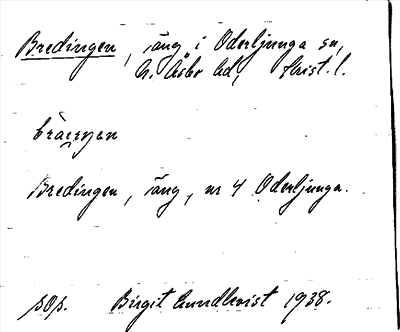 Bredingen, äng i Oderljunga sn,
N. Åsbo hd, Krist. l.
Bredingen, äng, nr 4 Oderljunga.
sOp. Birgit Lundkvist 1938.